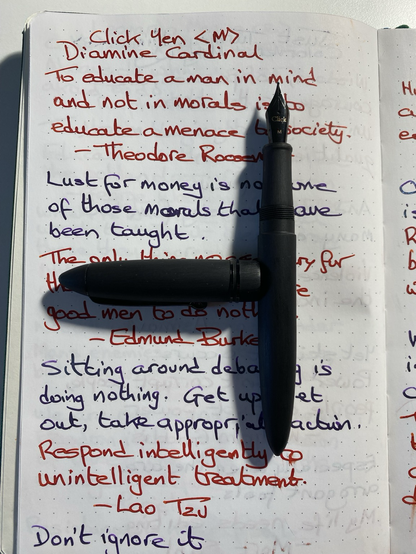 Click Yen <M>
Diamine Cardinal
To educate a man in mind
and not in morals is to
educate a menace to society.
- Theodore
Lust for money is
of those morals that
been taught.
The only for
good men to do
- Edmund Burke
Sitting around is
doing nothing. Get
out, take appropriate action.
Respond intelligently to
unintelligent treatment.
- Lao Tzu
Don't ignore it